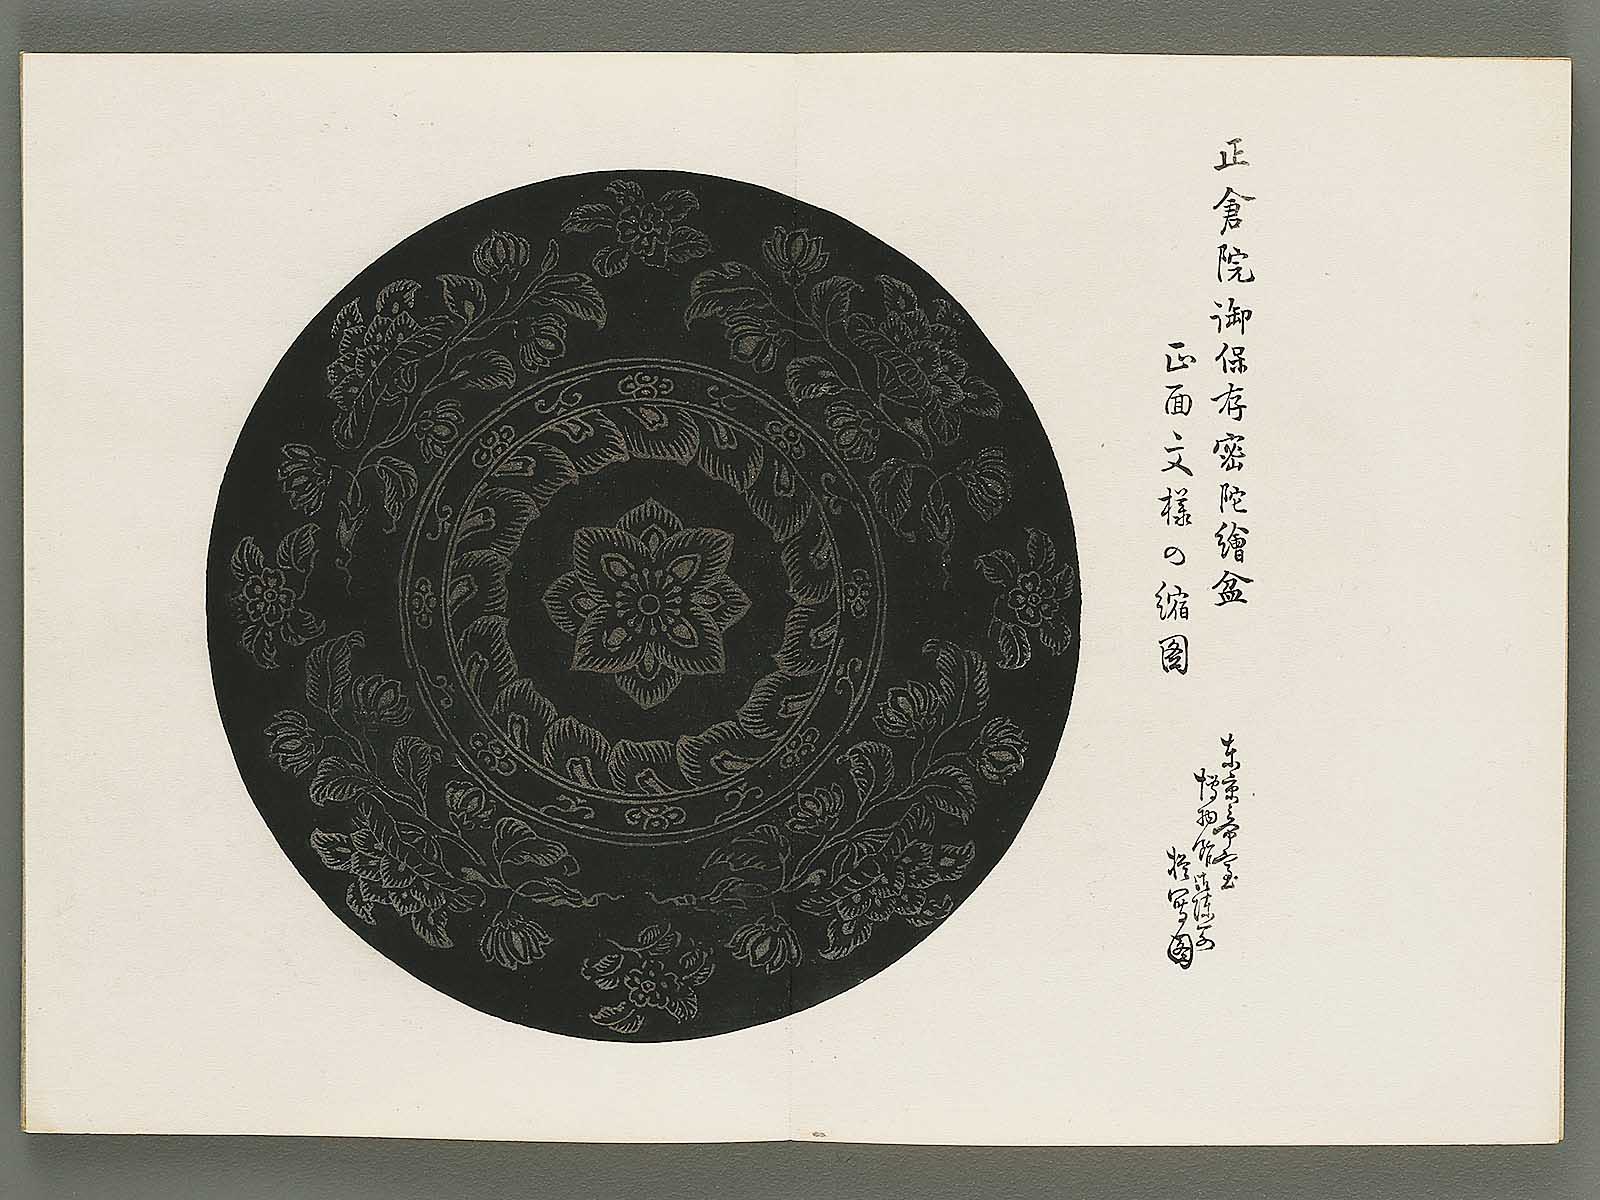 正倉院御保存密陀繪盆
正面文様の縮図
東京帝室
博物館御陳列
模写図